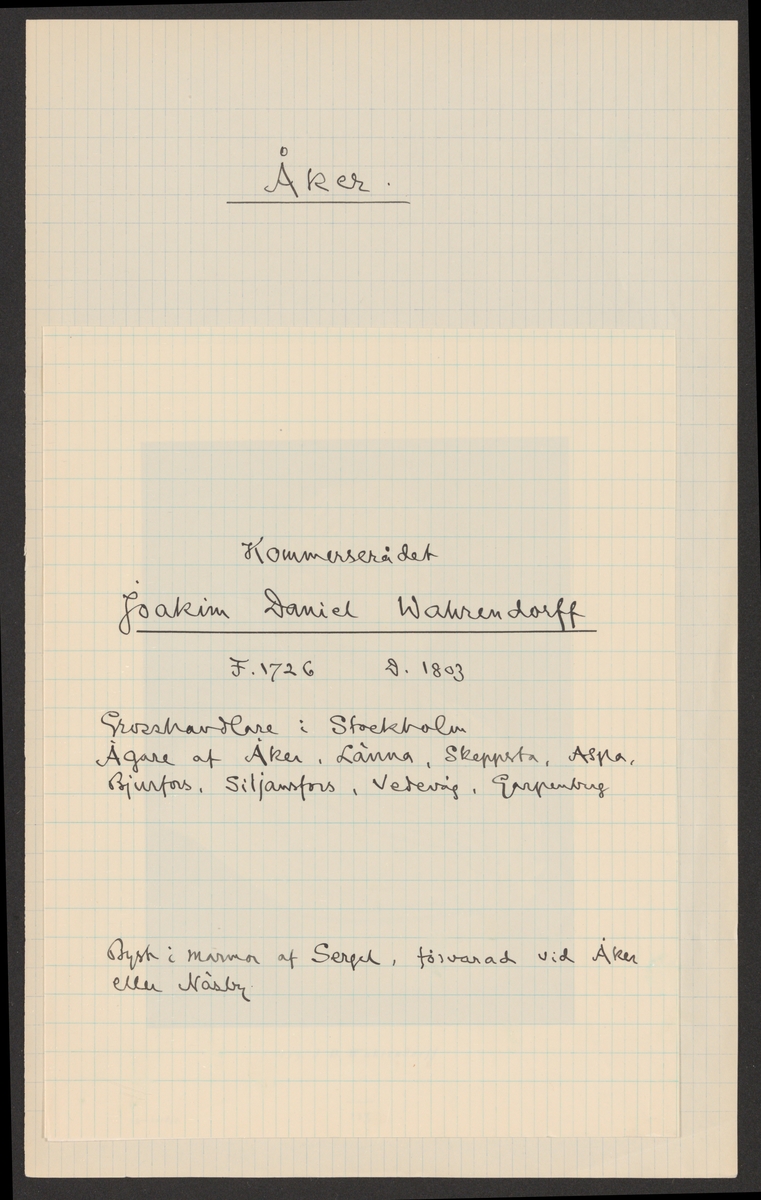 Åker.
Kommerserådet
Joakim Daniel Wahrendorff
F. 1726 D. 1803
Grosshandlare i Stockholm
Ägare af Åker, Länna, Skeppsta, Aspa,
Bjurfors, Siljansfors, Vedevåg, Garpenberg
Byst i marmor af Sergel, förvarad vid Åker
eller Näsby